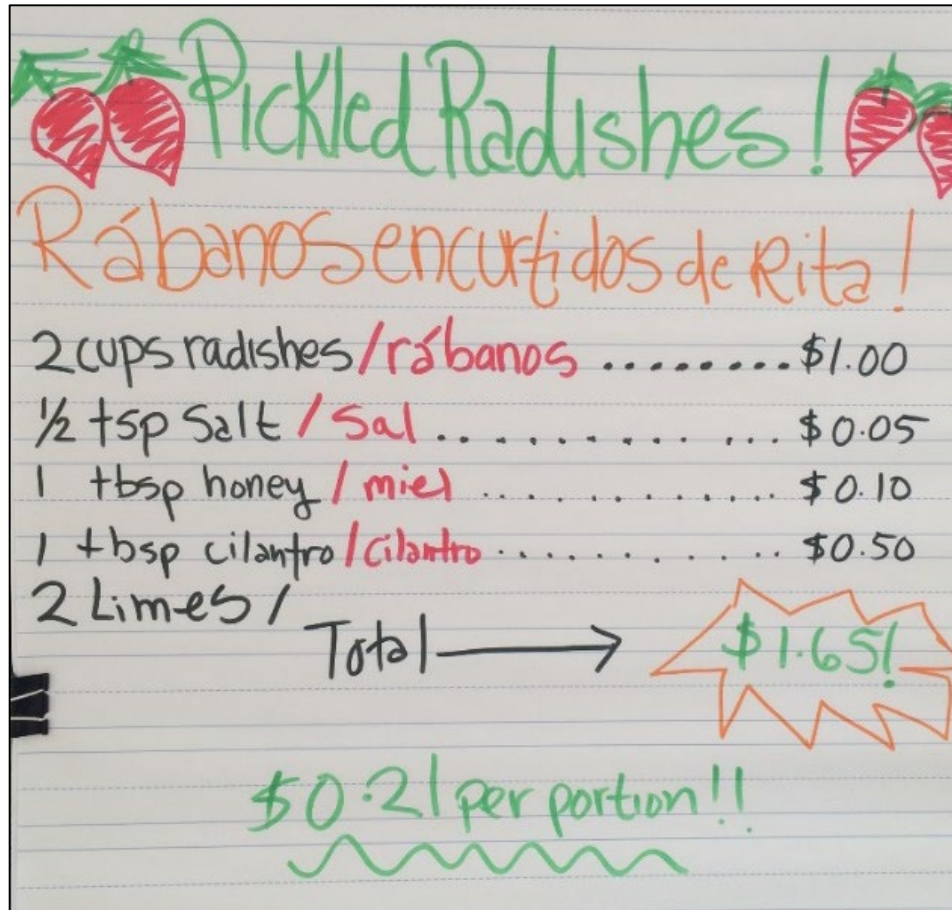 Pickled Radishes!
Rábanos encurtidos de Rita!
2 cups radishes/rábanos ......... $1.00
½ tsp Salt/Sal .............. $0.05
1 tbsp honey/miel .............. $0.10
1 tbsp cilantro/cilantro ............ $0.50
2 Limes/
Total → $1.65!
$0.21 per portion!!